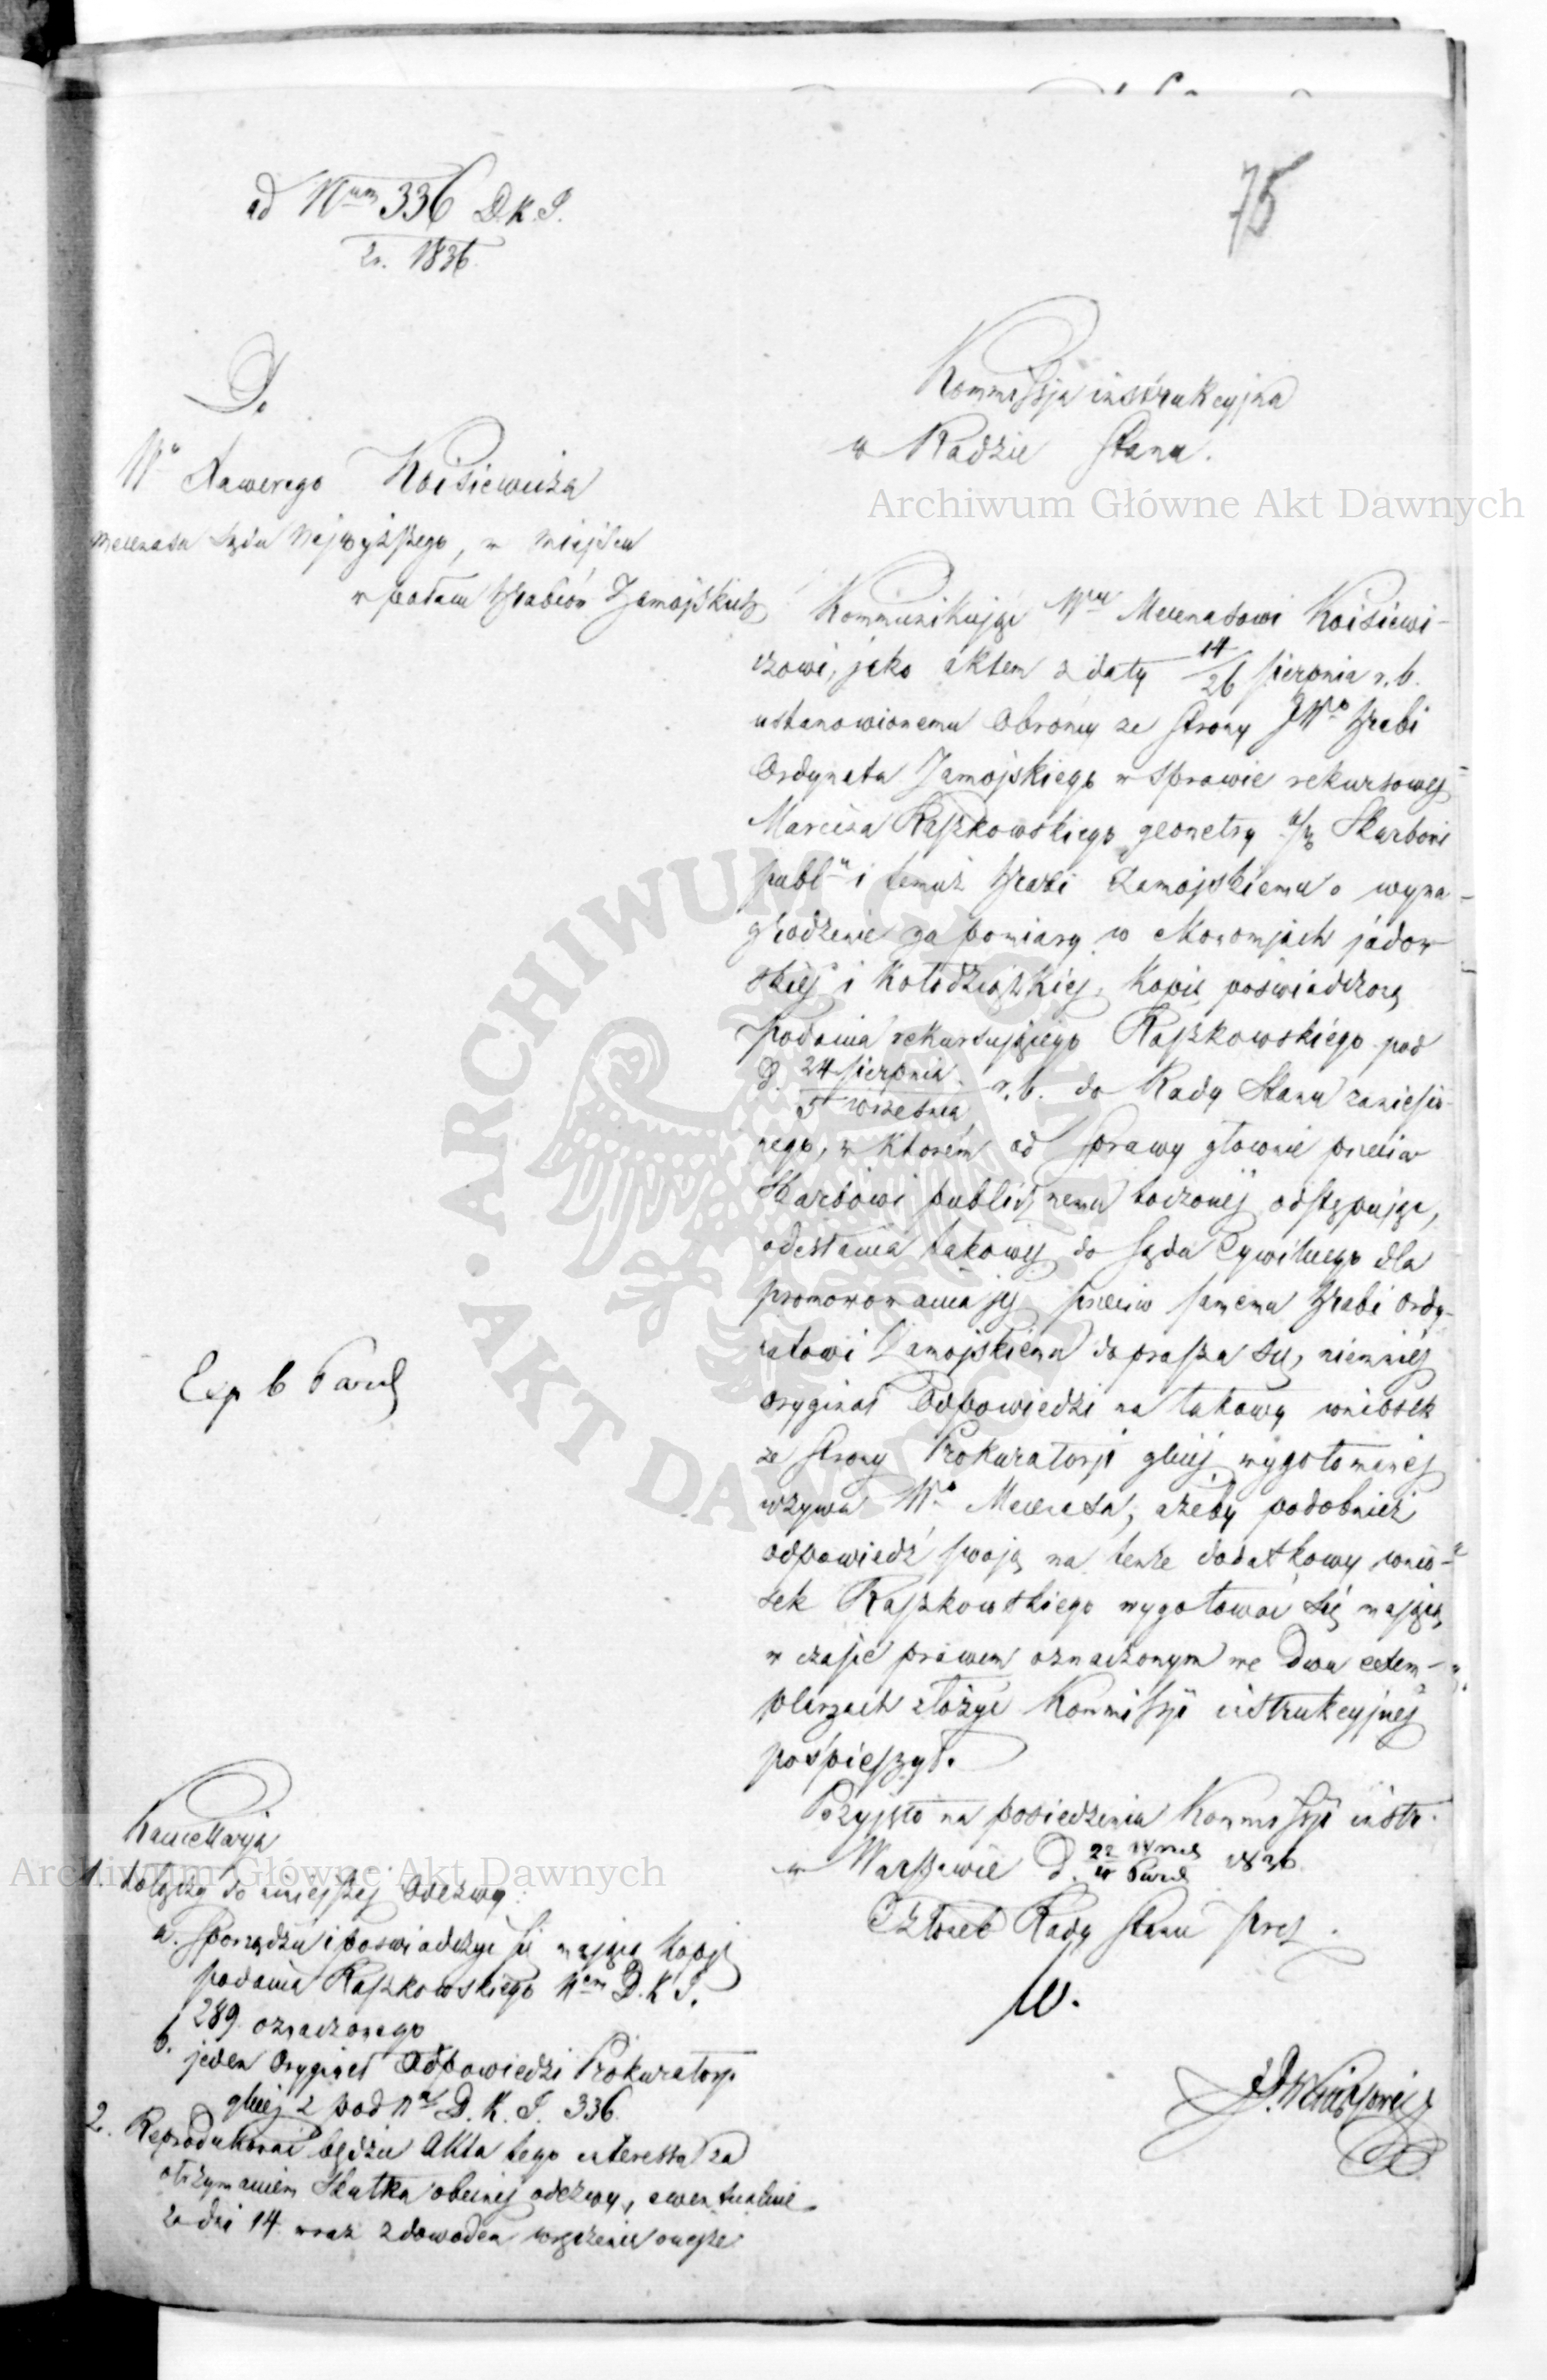 75
ad Num 336 D.K.I.
z r. 1836.
Do
Wo Xawerego Koisiewicza
Mecenasa Sądu Najwyższego, w miejscu
w pałacu Hrabiów Zamojskich
Kommissja instrukcyjna
w Radzie Stanu.
Kommunikując Wmu Mecenasowi Koisiewi-
czowi, jako aktem z daty 14/26 sierpnia r. b.
ustanowionemu Obrońcy ze strony JWo Hrabi
Ordynata Zamojskiego w sprawie rekursowej
Marcina Raszkowskiego geometry p/ko Skarbowi
publu i temuż Hrabi Zamojskiemu o wyna-
grodzenie za pomiary w ekonomjach jadow-
skiej i Kołodziążkiej, kopię poświadczoną
podania rekursującego Raszkowskiego pod
d. 24 sierpnia / 5 września r. b. do Rady Stanu zaniesio-
nego, w którem od sprawy głównie przeciw
Skarbowi publicznemu toczonej odstępując,
odesłania takowej do Sądu Cywilnego dla
promowowania jej przeciw samemu Hrabi Ordy-
natowi Zamojskiemu doprasza się, niemniej
oryginał Odpowiedzi na takowy wniosek
ze strony Prokuratorji głnej wygotowanej
wzywa Wo Mecenasa, ażeby podobnież
odpowiedź swoją na tenże dodatkowy wnio-
sek Raszkowskiego wygotować się mającą
w czasie prawem oznaczonym we dwu exem-
plarzach złożyć Kommissji instrukcyjnej
pośpieszył.
Przyjęto na posiedzeniu Kommissji instr.
w Warszawie d. 22 Wrześ / 4 Paźd 1836
Członek Rady Stanu Prez.
W.
Exp 6 Paźd
Kancellarja
1. dołączy do niniejszej Odezwy:
a. sporządzić i poświadczyć się mającą kopję
podania Raszkowskiego Nem D.K.I.
289 oznaczonego
b. jeden oryginał Odpowiedzi Prokuratorji
głnej z pod No D.K.I. 336.
2. Reprodukować będzie Akta tego interessu za
otrzymaniem skutku obecnej odezwy, ewentualnie
za dni 14 wraz z dowodem wręczenia onejże